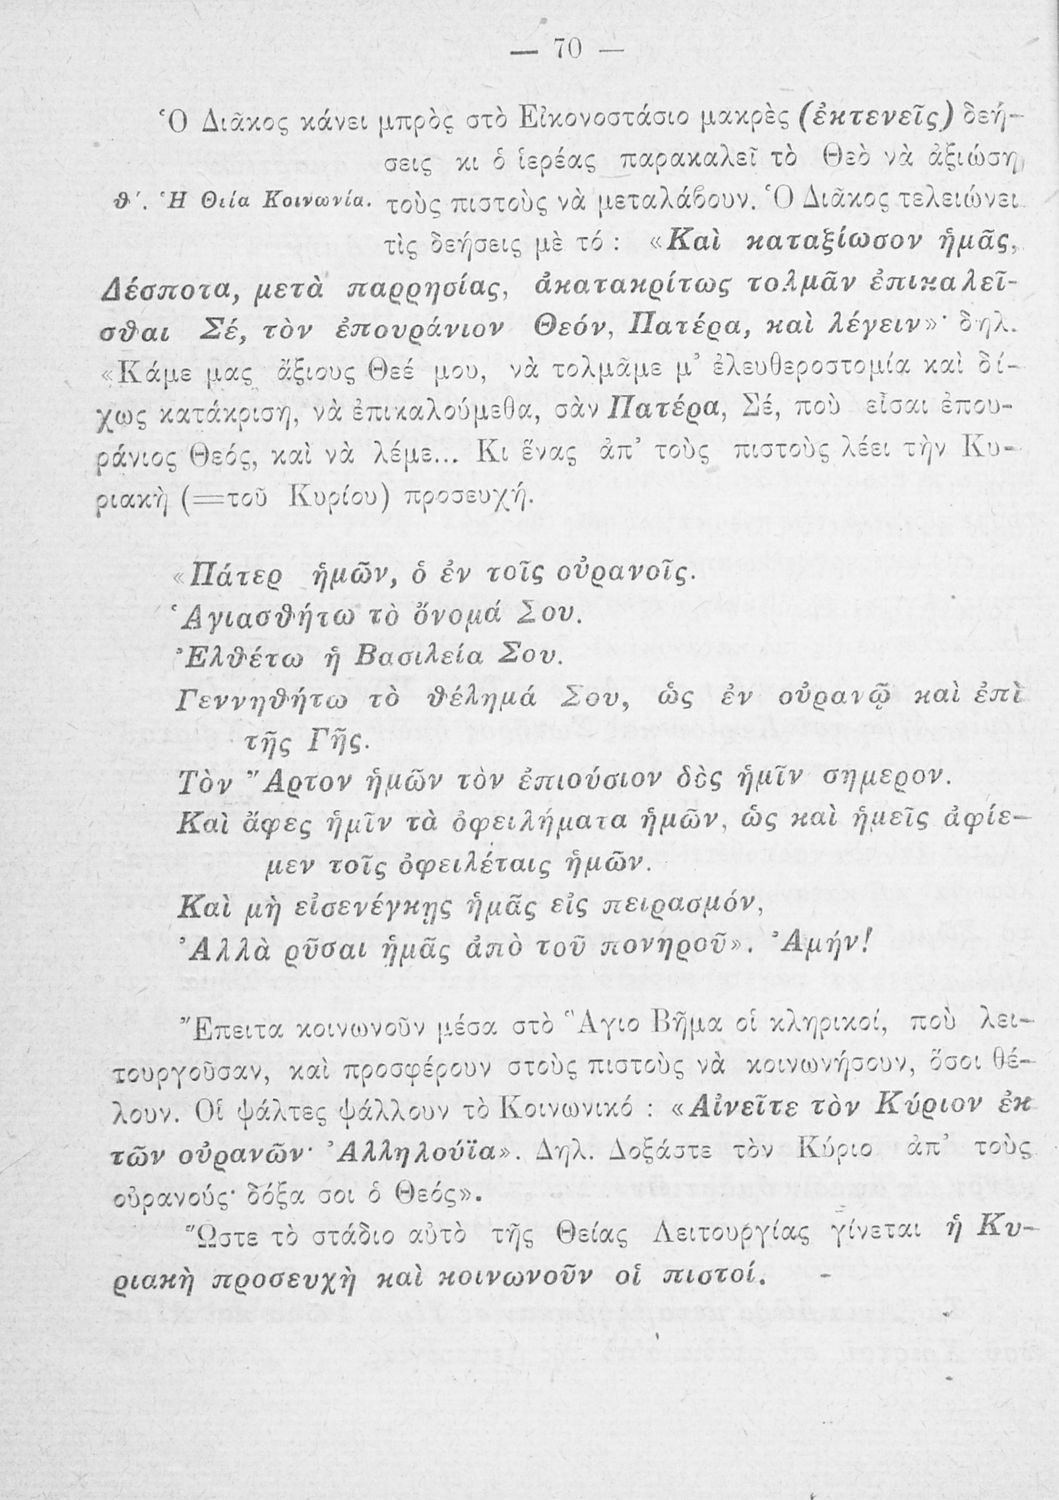 — 70 —
Ὁ Διᾶκος κάνει μπρὸς στὸ Εἰκονοστάσιο μακρὲς (ἐκτενεῖς) δεή-
σεις κι ὁ ἱερέας παρακαλεῖ τὸ Θεὸ νὰ ἀξιώσῃ
θ΄. Ἡ Θεία Κοινωνία. τοὺς πιστοὺς νὰ μεταλάβουν. Ὁ Διᾶκος τελειώνει
τὶς δεήσεις μὲ τό : «Καὶ καταξίωσον ἡμᾶς,
Δέσποτα, μετὰ παρρησίας, ἀκατακρίτως τολμᾶν ἐπικαλεῖ-
σθαι Σέ, τὸν ἐπουράνιον Θεόν, Πατέρα, καὶ λέγειν»· δηλ.
«Κάμε μας ἄξιους Θεέ μου, νὰ τολμᾶμε μ᾽ ἐλευθεροστομία καὶ δί-
χως κατάκριση, νὰ ἐπικαλούμεθα, σὰν Πατέρα, Σέ, ποὺ εἶσαι ἐπου-
ράνιος Θεός, καὶ νὰ λέμε... Κι ἕνας ἀπ᾽ τοὺς πιστοὺς λέει τὴν Κυ-
ριακὴ (=τοῦ Κυρίου) προσευχή.
«Πάτερ ἡμῶν, ὁ ἐν τοῖς οὐρανοῖς.
Ἁγιασθήτω τὸ ὄνομά Σου.
Ἐλθέτω ἡ Βασιλεία Σου.
Γεννηθήτω τὸ θέλημά Σου, ὡς ἐν οὐρανῷ καὶ ἐπὶ
τῆς Γῆς.
Τὸν Ἄρτον ἡμῶν τὸν ἐπιούσιον δὸς ἡμῖν σημερον.
Καὶ ἄφες ἡμῖν τὰ ὀφειλήματα ἡμῶν, ὡς καὶ ἡμεῖς ἀφίε-
μεν τοῖς ὀφειλέταις ἡμῶν.
Καὶ μὴ εἰσενέγκῃς ἡμᾶς εἰς πειρασμόν,
Ἀλλὰ ρῦσαι ἡμᾶς ἀπὸ τοῦ πονηροῦ». Ἀμήν!
Ἔπειτα κοινωνοῦν μέσα στὸ Ἅγιο Βῆμα οἱ κληρικοί, ποὺ λει-
τουργοῦσαν, καὶ προσφέρουν στοὺς πιστοὺς νὰ κοινωνήσουν, ὅσοι θέ-
λουν. Οἱ ψάλτες ψάλλουν τὸ Κοινωνικό : «Αἰνεῖτε τὸν Κύριον ἐκ
τῶν οὐρανῶν· Ἀλληλούϊα». Δηλ. Δοξάστε τὸν Κύριο ἀπ᾽ τοὺς
οὐρανούς· δόξα σοι ὁ Θεός».
Ὥστε τὸ στάδιο αὐτὸ τῆς Θείας Λειτουργίας γίνεται ἡ Κυ-
ριακὴ προσευχὴ καὶ κοινωνοῦν οἱ πιστοί.